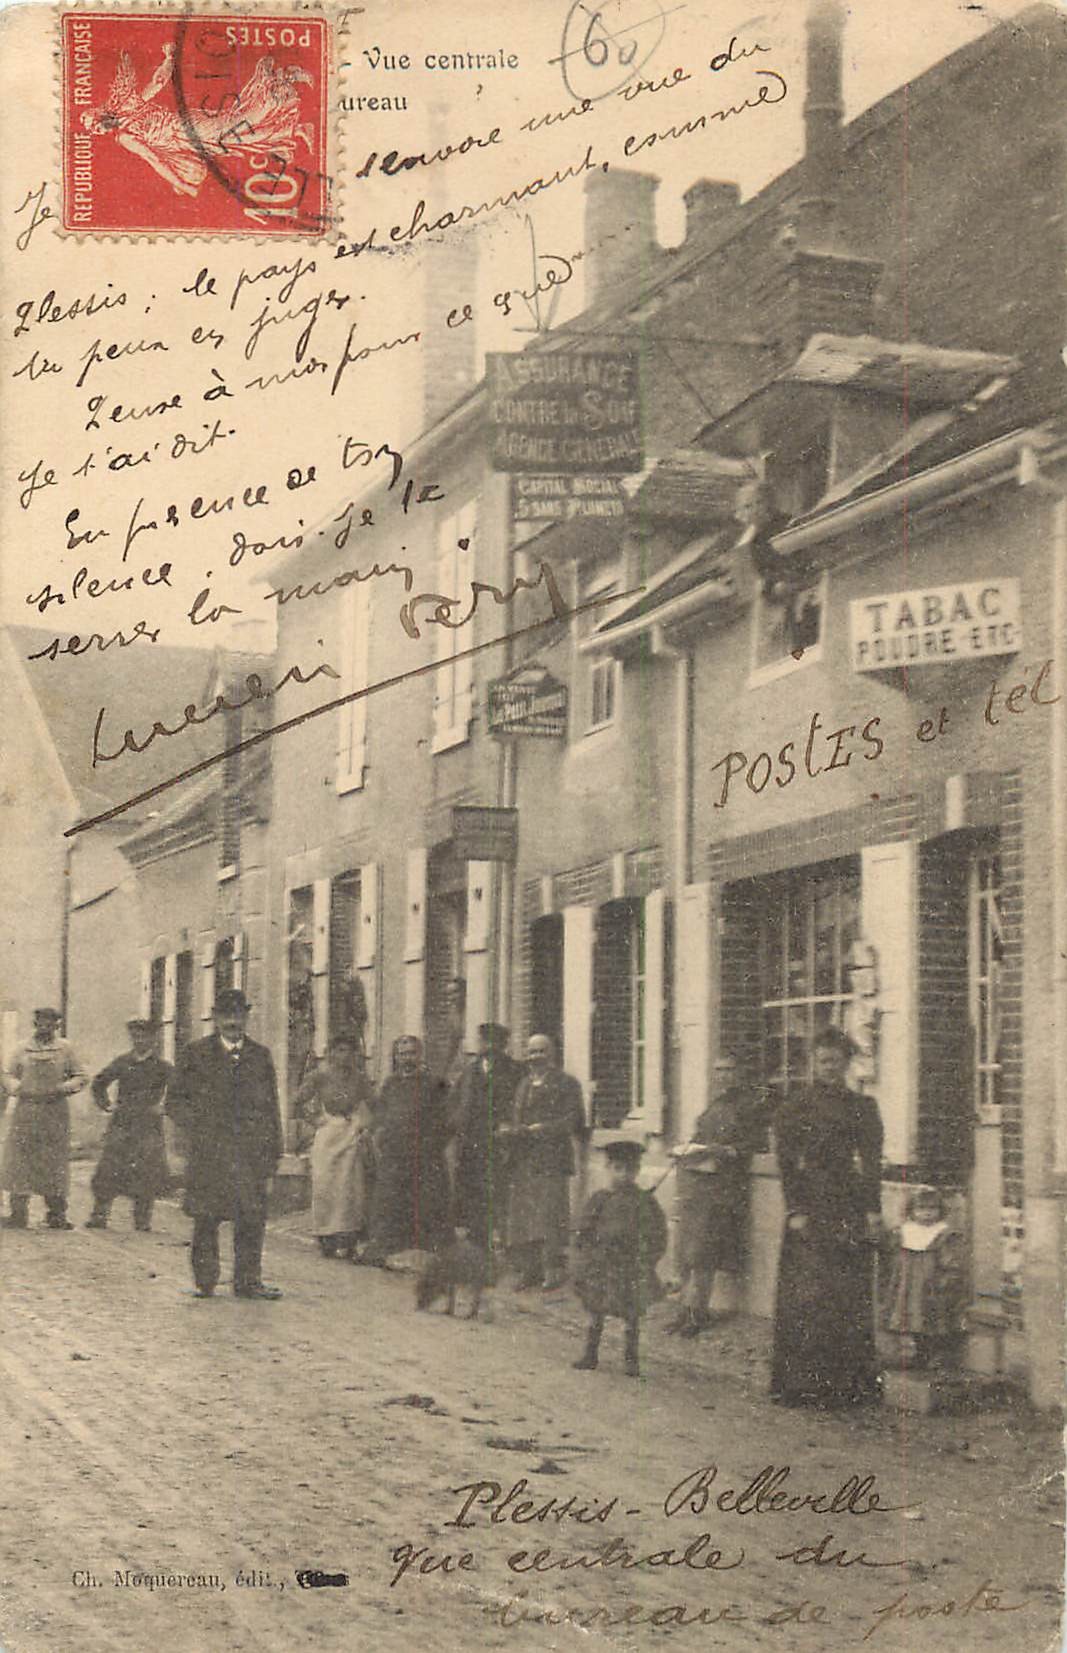 - Vue centrale
60
ureau
POSTES
REPUBLIQUE FRANÇAISE
10c
OISE
Je t'envoie une vue du
Plessis; le pays est charmant, comme
tu peux en juger.
Pense à moi pour ce que
je t'ai dit.
En présence de ton
silence, dois-je te
serrer la main?
Lucien Pery
ASSURANCE
CONTRE LA SOIF
AGENCE GENERALE
CAPITAL SOCIAL
TABAC
POUDRE ETC
POSTES et tél
Plessis-Belleville
Vue centrale du
bureau de poste
Ch. Moquereau, édit.,